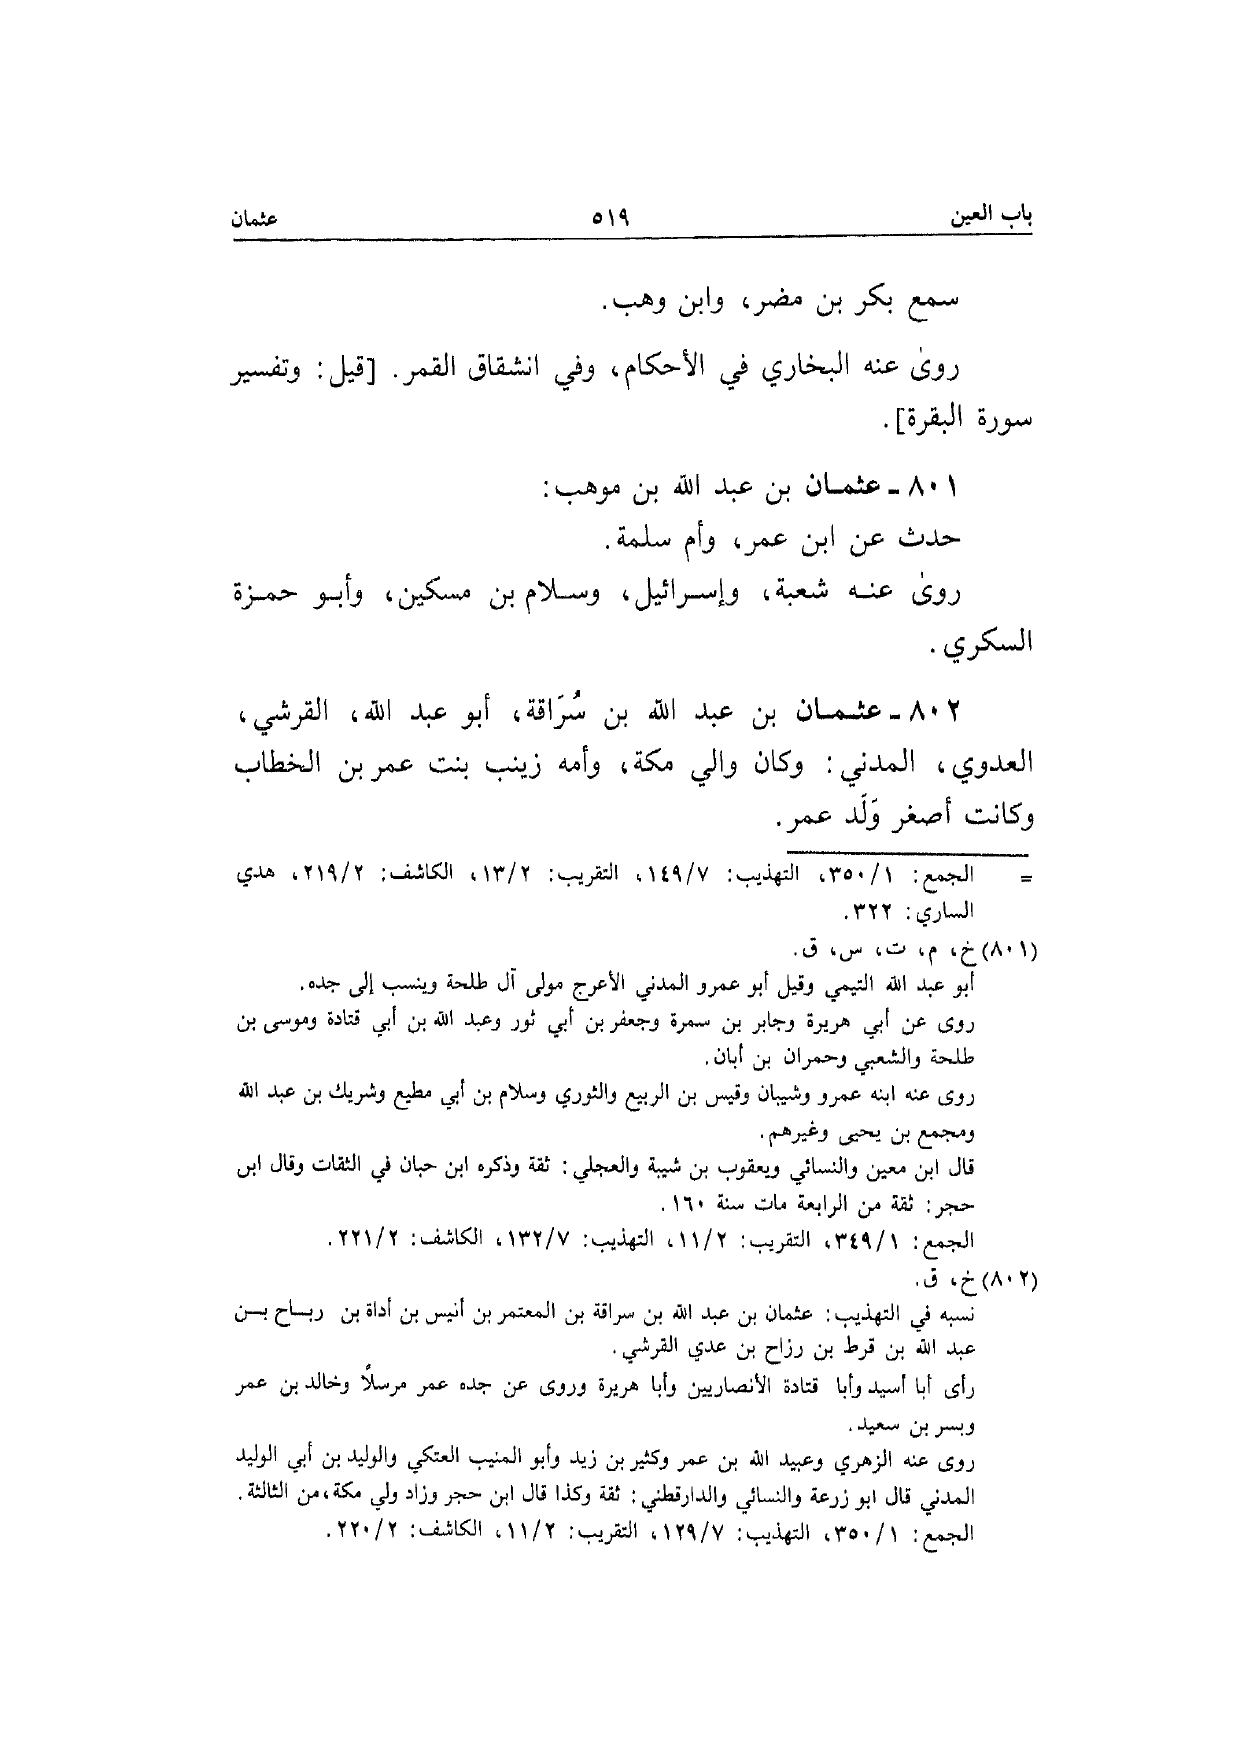 باب العين ٥١٩ عثمان
سمع بكر بن مضر، وابن وهب.
روىٰ عنه البخاري في الأحكام، وفي انشقاق القمر. [قيل: وتفسير
سورة البقرة].
٨٠١ ـ عثمـان بن عبد الله بن موهب:
حدث عن ابن عمر، وأم سلمة.
روىٰ عنـه شعبة، وإسـرائيل، وسـلام بن مسكين، وأبـو حمـزة
السكري.
٨٠٢ ـ عثـمـان بن عبد الله بن سُرَاقة، أبو عبد الله، القرشي،
العدوي، المدني: وكان والي مكة، وأمه زينب بنت عمر بن الخطاب
وكانت أصغر وَلَد عمر.
= الجمع: ٣٥٠/١، التهذيب: ١٤٩/٧، التقريب: ١٣/٢، الكاشف: ٢١٩/٢، هدي
الساري: ٣٢٢.
(٨٠١) خ، م، ت، س، ق.
أبو عبد الله التيمي وقيل أبو عمرو المدني الأعرج مولى آل طلحة وينسب إلى جده.
روى عن أبي هريرة وجابر بن سمرة وجعفر بن أبي ثور وعبد الله بن أبي قتادة وموسى بن
طلحة والشعبي وحمران بن أبان.
روى عنه ابنه عمرو وشيبان وقيس بن الربيع والثوري وسلام بن أبي مطيع وشريك بن عبد الله
ومجمع بن يحيى وغيرهم.
قال ابن معين والنسائي ويعقوب بن شيبة والعجلي: ثقة وذكره ابن حبان في الثقات وقال ابن
حجر: ثقة من الرابعة مات سنة ١٦٠.
الجمع: ٣٤٩/١، التقريب: ١١/٢، التهذيب: ١٣٢/٧، الكاشف: ٢٢١/٢.
(٨٠٢) خ، ق.
نسبه في التهذيب: عثمان بن عبد الله بن سراقة بن المعتمر بن أنيس بن أداة بن ربـاح بـن
عبد الله بن قرط بن رزاح بن عدي القرشي.
رأى أبا أسيد وأبا قتادة الأنصاريين وأبا هريرة وروى عن جده عمر مرسلاً وخالد بن عمر
وبسر بن سعيد.
روى عنه الزهري وعبيد الله بن عمر وكثير بن زيد وأبو المنيب العتكي والوليد بن أبي الوليد
المدني قال ابو زرعة والنسائي والدارقطني: ثقة وكذا قال ابن حجر وزاد ولي مكة، من الثالثة.
الجمع: ٣٥٠/١، التهذيب: ١٢٩/٧، التقريب: ١١/٢، الكاشف: ٢٢٠/٢.